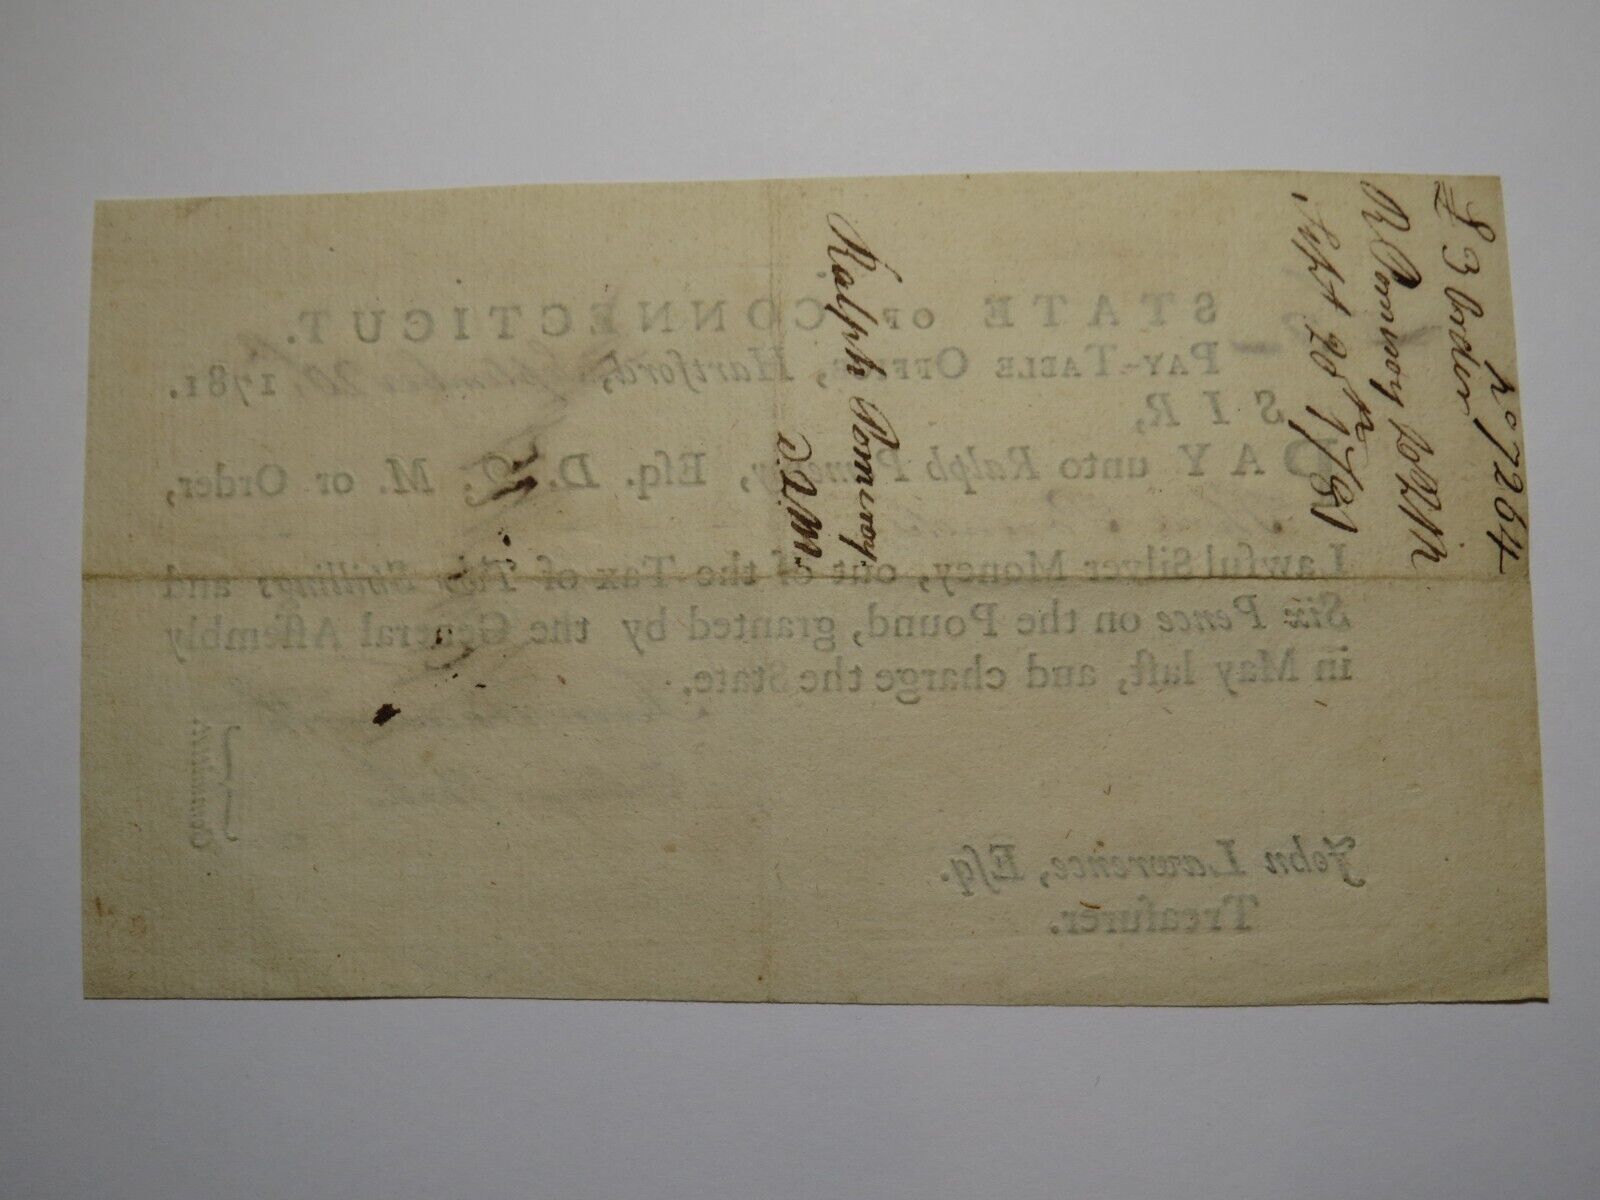 No 7264
£3 Order
R Pomroy DQM
Sept 20th 1781
Ralph Pomroy.
D.Q.M.
STATE OF CONNECTICUT.
PAY-TABLE OFFICE, Hartford, September 20, 1781.
SIR,
PAY unto Ralph Pomeroy, Eſq. D. Q. M. or Order,
Lawful Silver Money, out of the Tax of Two Shillings and
Six Pence on the Pound, granted by the General Aſſembly
in May laſt, and charge the State.
Committee
John Lawrence, Eſq.
Treaſurer.